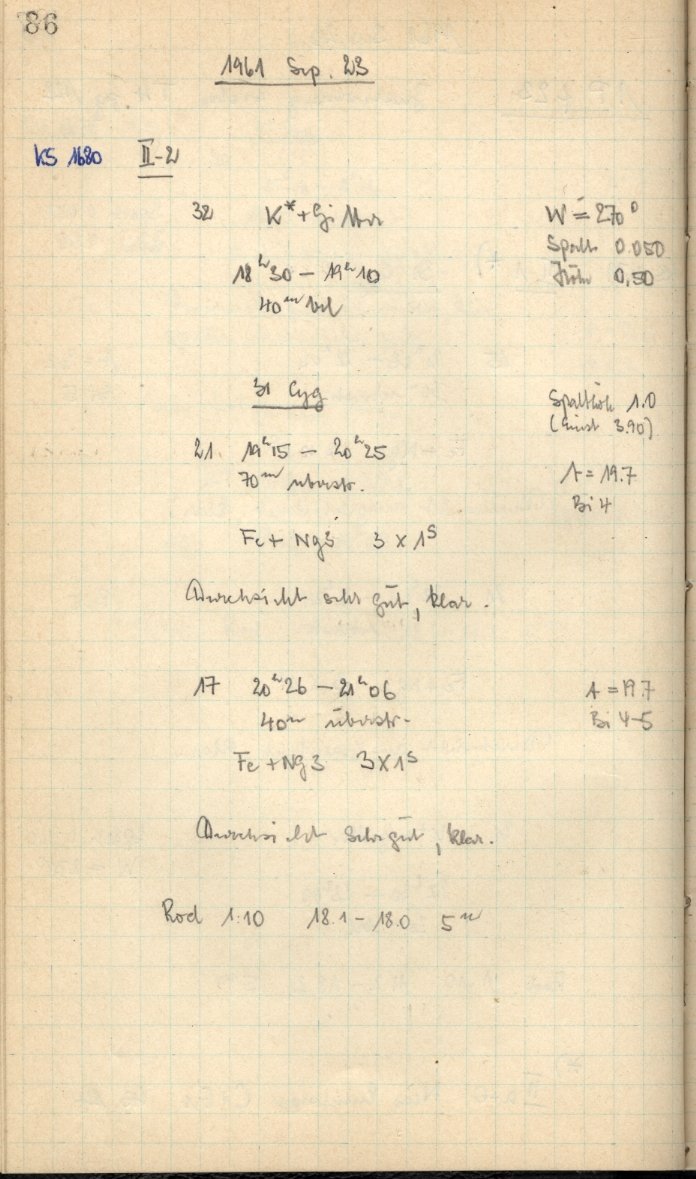 86
1961 Sep. 23
KS 1680 II-2
32 K*+Gi
W = 270°
Spalt 0.050
Höhe 0,50
18ʰ30 – 19ʰ10
40ᵐ bel
31 Cyg
Spalthöh 1.0
3.90)
21. 19ʰ15 – 20ʰ25
70ᵐ überstr.
A = 19.7
Bi 4
Fe + Ng3 3 x 1ˢ
Durchsicht sehr gut, klar.
17 20ʰ26 – 21ʰ06
40ᵐ überstr.
A = 19.7
Bi 4-5
Fe + Ng 3 3x1ˢ
Durchsicht sehr gut, klar.
Rod 1:10 18.1 – 18.0 5ᵐ